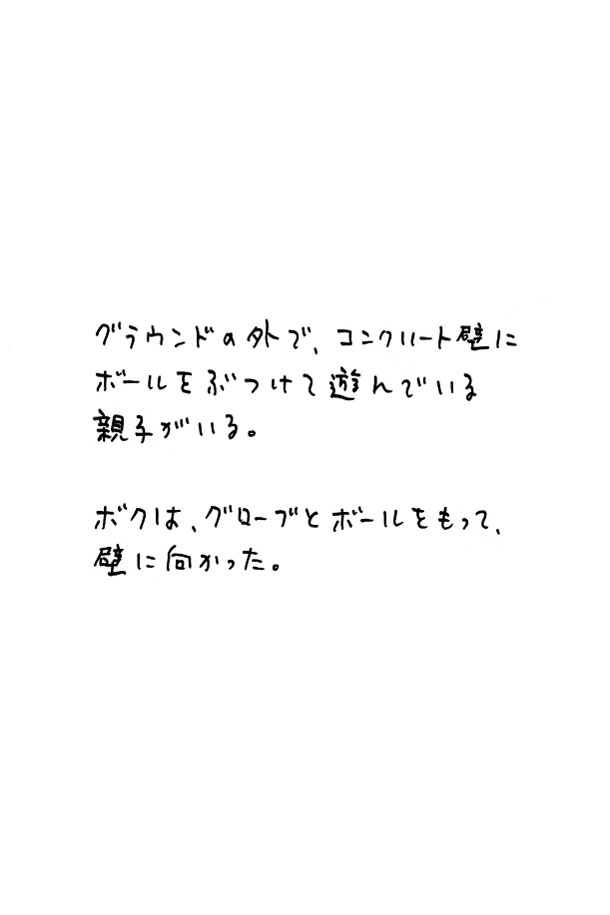 グラウンドの外で、コンクリート壁に
ボールをぶつけて遊んでいる
親子がいる。
ボクは、グローブとボールをもって、
壁に向かった。